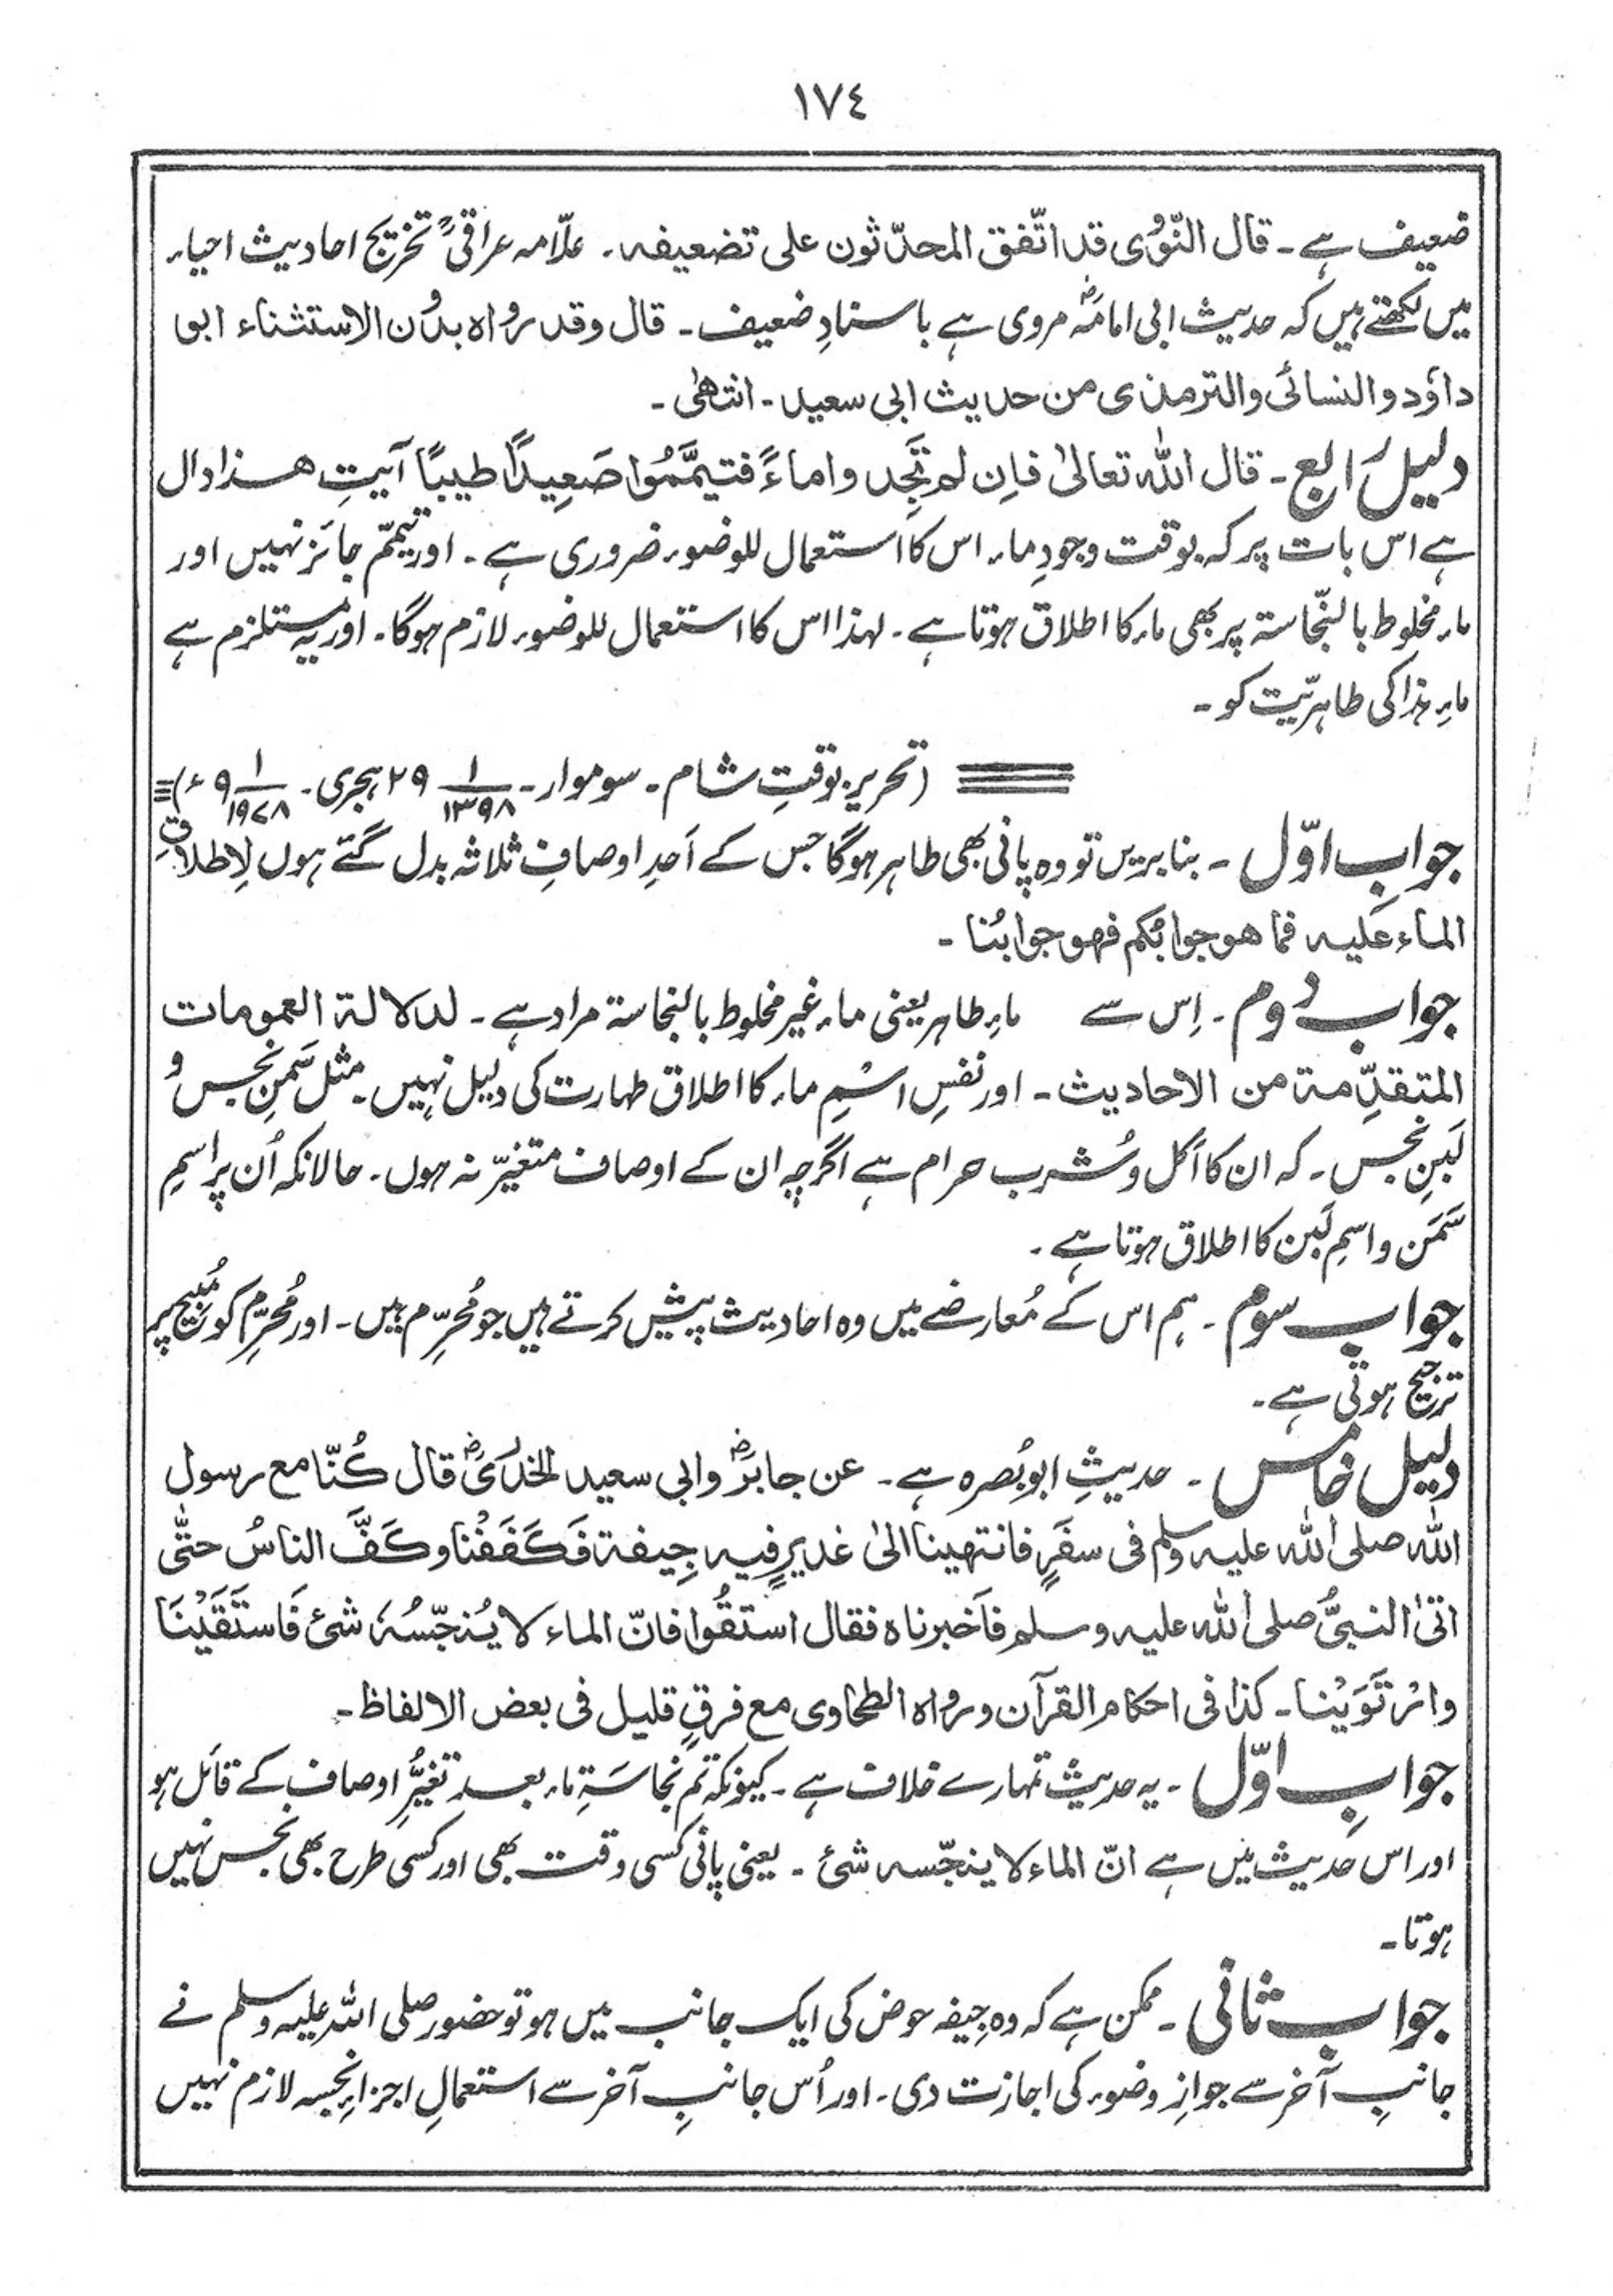 ١٧٤
ضعیف ہے ۔ قال النّووی قد اتّفق المحدّثون علی تضعیفہ ۔ علّامہ عراقیؒ تخریج احادیث احیاء
میں لکھتے ہیں کہ حدیث ابی امامہؓ مروی ہے باسنادِ ضعیف ۔ قال وقد رواہ بدون الاستثناء ابو
داؤد والنسائی والترمذی من حدیث ابی سعید ۔ انتھٰی ۔
دلیل رابع ۔ قال اللہ تعالیٰ فاِن لم تَجِدوا ماءً فتیمَّمُوا صَعِیدًا طیبًا آیتِ ھذا دال
ہے اس بات پر کہ بوقت وجودِ ماء اس کا استعمال للوضوء ضروری ہے ۔ اور تیمّم جائز نہیں اور
ماء مخلوط بالنّجاستہ پر بھی ماء کا اطلاق ہوتا ہے ۔ لہذا اس کا استعمال للوضوء لازم ہوگا ۔ اور یہ مستلزم ہے
ماءِ ہذا کی طاہریّت کو ۔
(تحریر بوقتِ شام ۔ سوموار ۔ ۱/۱۳۹۸ ۲۹ ہجری ۔ ۱/۱۹۷۸ ۹ ء)
جوابِ اوّل ۔ بنا بریں تو وہ پانی بھی طاہر ہوگا جس کے اَحدِ اوصافِ ثلاثہ بدل گئے ہوں لِاطلاقِ
الماء علیہ فما ھو جوابُکم فھو جوابُنا ۔
جواب دوم ۔ اِس سے ماءِ طاہر یعنی ماء غیر مخلوط بالنجاستہ مراد ہے ۔ لدلالۃ العمومات
المتقدِّمۃ من الاحادیث ۔ اور نفسِ اسْمِ ماء کا اطلاق طہارت کی دلیل نہیں ۔ مثل سَمنِ نجس و
لَبنِ نجس ۔ کہ ان کا اَکل و شُرب حرام ہے اگرچہ ان کے اوصاف متغیّر نہ ہوں ۔ حالانکہ اُن پر اسمِ
سَمَن و اسمِ لَبن کا اطلاق ہوتا ہے ۔
جواب سوم ۔ ہم اس کے مُعارضے میں وہ احادیث پیش کرتے ہیں جو مُحرِّم ہیں ۔ اور مُحرِّم کو مُبیح پر
ترجیح ہوتی ہے ۔
دلیل خامس ۔ حدیثِ ابو بُصرہ ہے ۔ عن جابرؓ وابی سعید الخدریؓ قال کُنّا مع رسول
اللہ صلی اللہ علیہ وسلم فی سفَرٍ فانتھینا الیٰ غدیرٍ فیہ جِیفۃ فَکَفَفْنا وکَفَّ الناسُ حتّٰی
اتیٰ النبیُّ صلی اللہ علیہ وسلم فاَخبرناہ فقال استقُوا فانّ الماء لا یُنجّسُہٗ شیٔ فَاستَقَیْنَا
وارْتَوَیْنا ۔ کذا فی احکام القرآن ورواہ الطحاوی مع فرقٍ قلیل فی بعض الالفاظ ۔
جوابِ اوّل ۔ یہ حدیث تمہارے خلاف ہے ۔ کیونکہ تم نجاسَۃِ ماء بعد تغیُّرِ اوصاف کے قائل ہو
اور اس حدیث میں ہے انّ الماء لا ینجّسہ شیٔ ۔ یعنی پانی کسی وقت بھی اور کسی طرح بھی نجس نہیں
ہوتا ۔
جواب ثانی ۔ ممکن ہے کہ وہ جِیفہ حوض کی ایک جانب میں ہو تو حضور صلی اللہ علیہ وسلم نے
جانبِ آخر سے جوازِ وضوء کی اجازت دی ۔ اور اُس جانبِ آخر سے استعمالِ اجزاءِ نجِسہ لازم نہیں